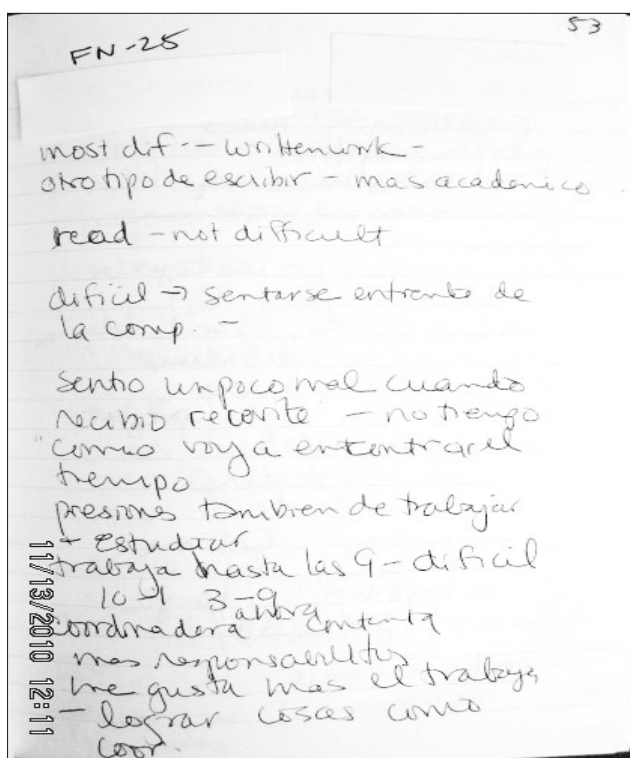 53
FN-25
most dif -- written work -
otro tipo de escribir - mas academico
read - not difficult
dificil → sentarse enfrente de
la comp. -
sentio un poco mal cuando
recibio - no tiempo
"como voy a encontrar el
tiempo
presiones tambien de trabajar
+ estudiar
trabaja hasta las 9 - dificil
10-1 3-9
ahora
coordinadora contenta
mas
me gusta mas el trabajo
- lograr cosas como
coor.
11/13/2010 12:11